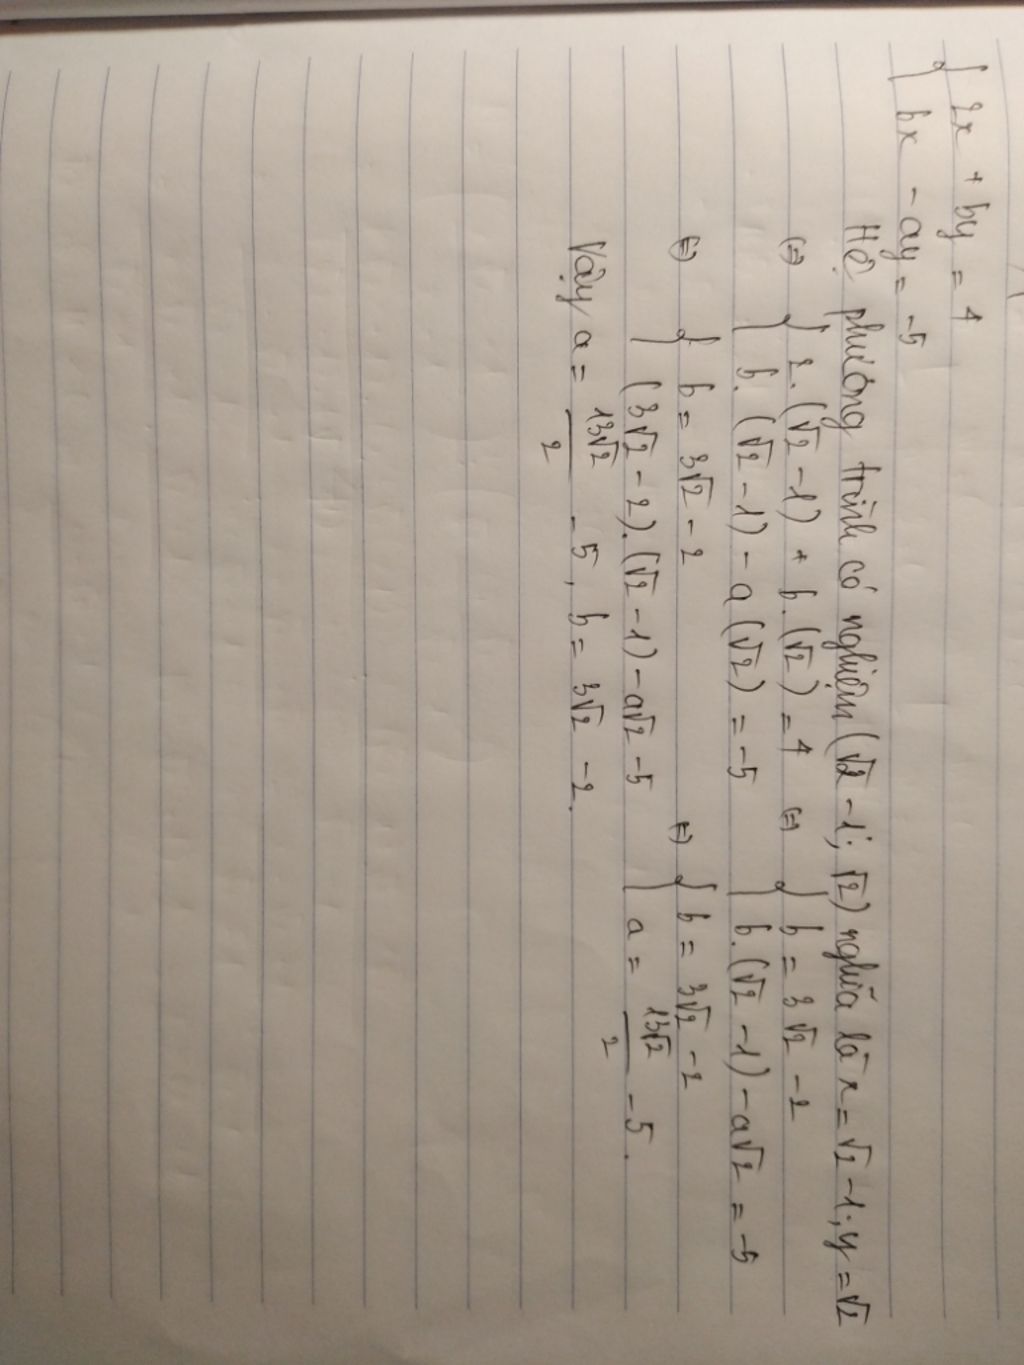 { 2x + by = 4
bx - ay = -5
Hệ phương trình có nghiệm (√2 - 1; √2) nghĩa là x = √2 - 1; y = √2
(=) { 2. (√2 - 1) + b. (√2) = 4 (=) { b = 3√2 - 2
b. (√2 - 1) - a (√2) = -5 b. (√2 - 1) - a√2 = -5
(=) { b = 3√2 - 2 (=) { b = 3√2 - 2
(3√2 - 2). (√2 - 1) - a√2 - 5 a = 13√2/2 - 5.
Vậy a = 13√2/2 - 5, b = 3√2 - 2.